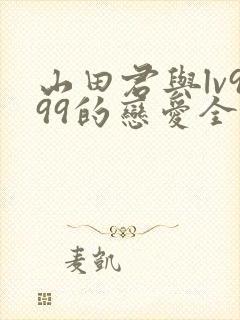 山田君與lv9
99的戀愛全
麦凱